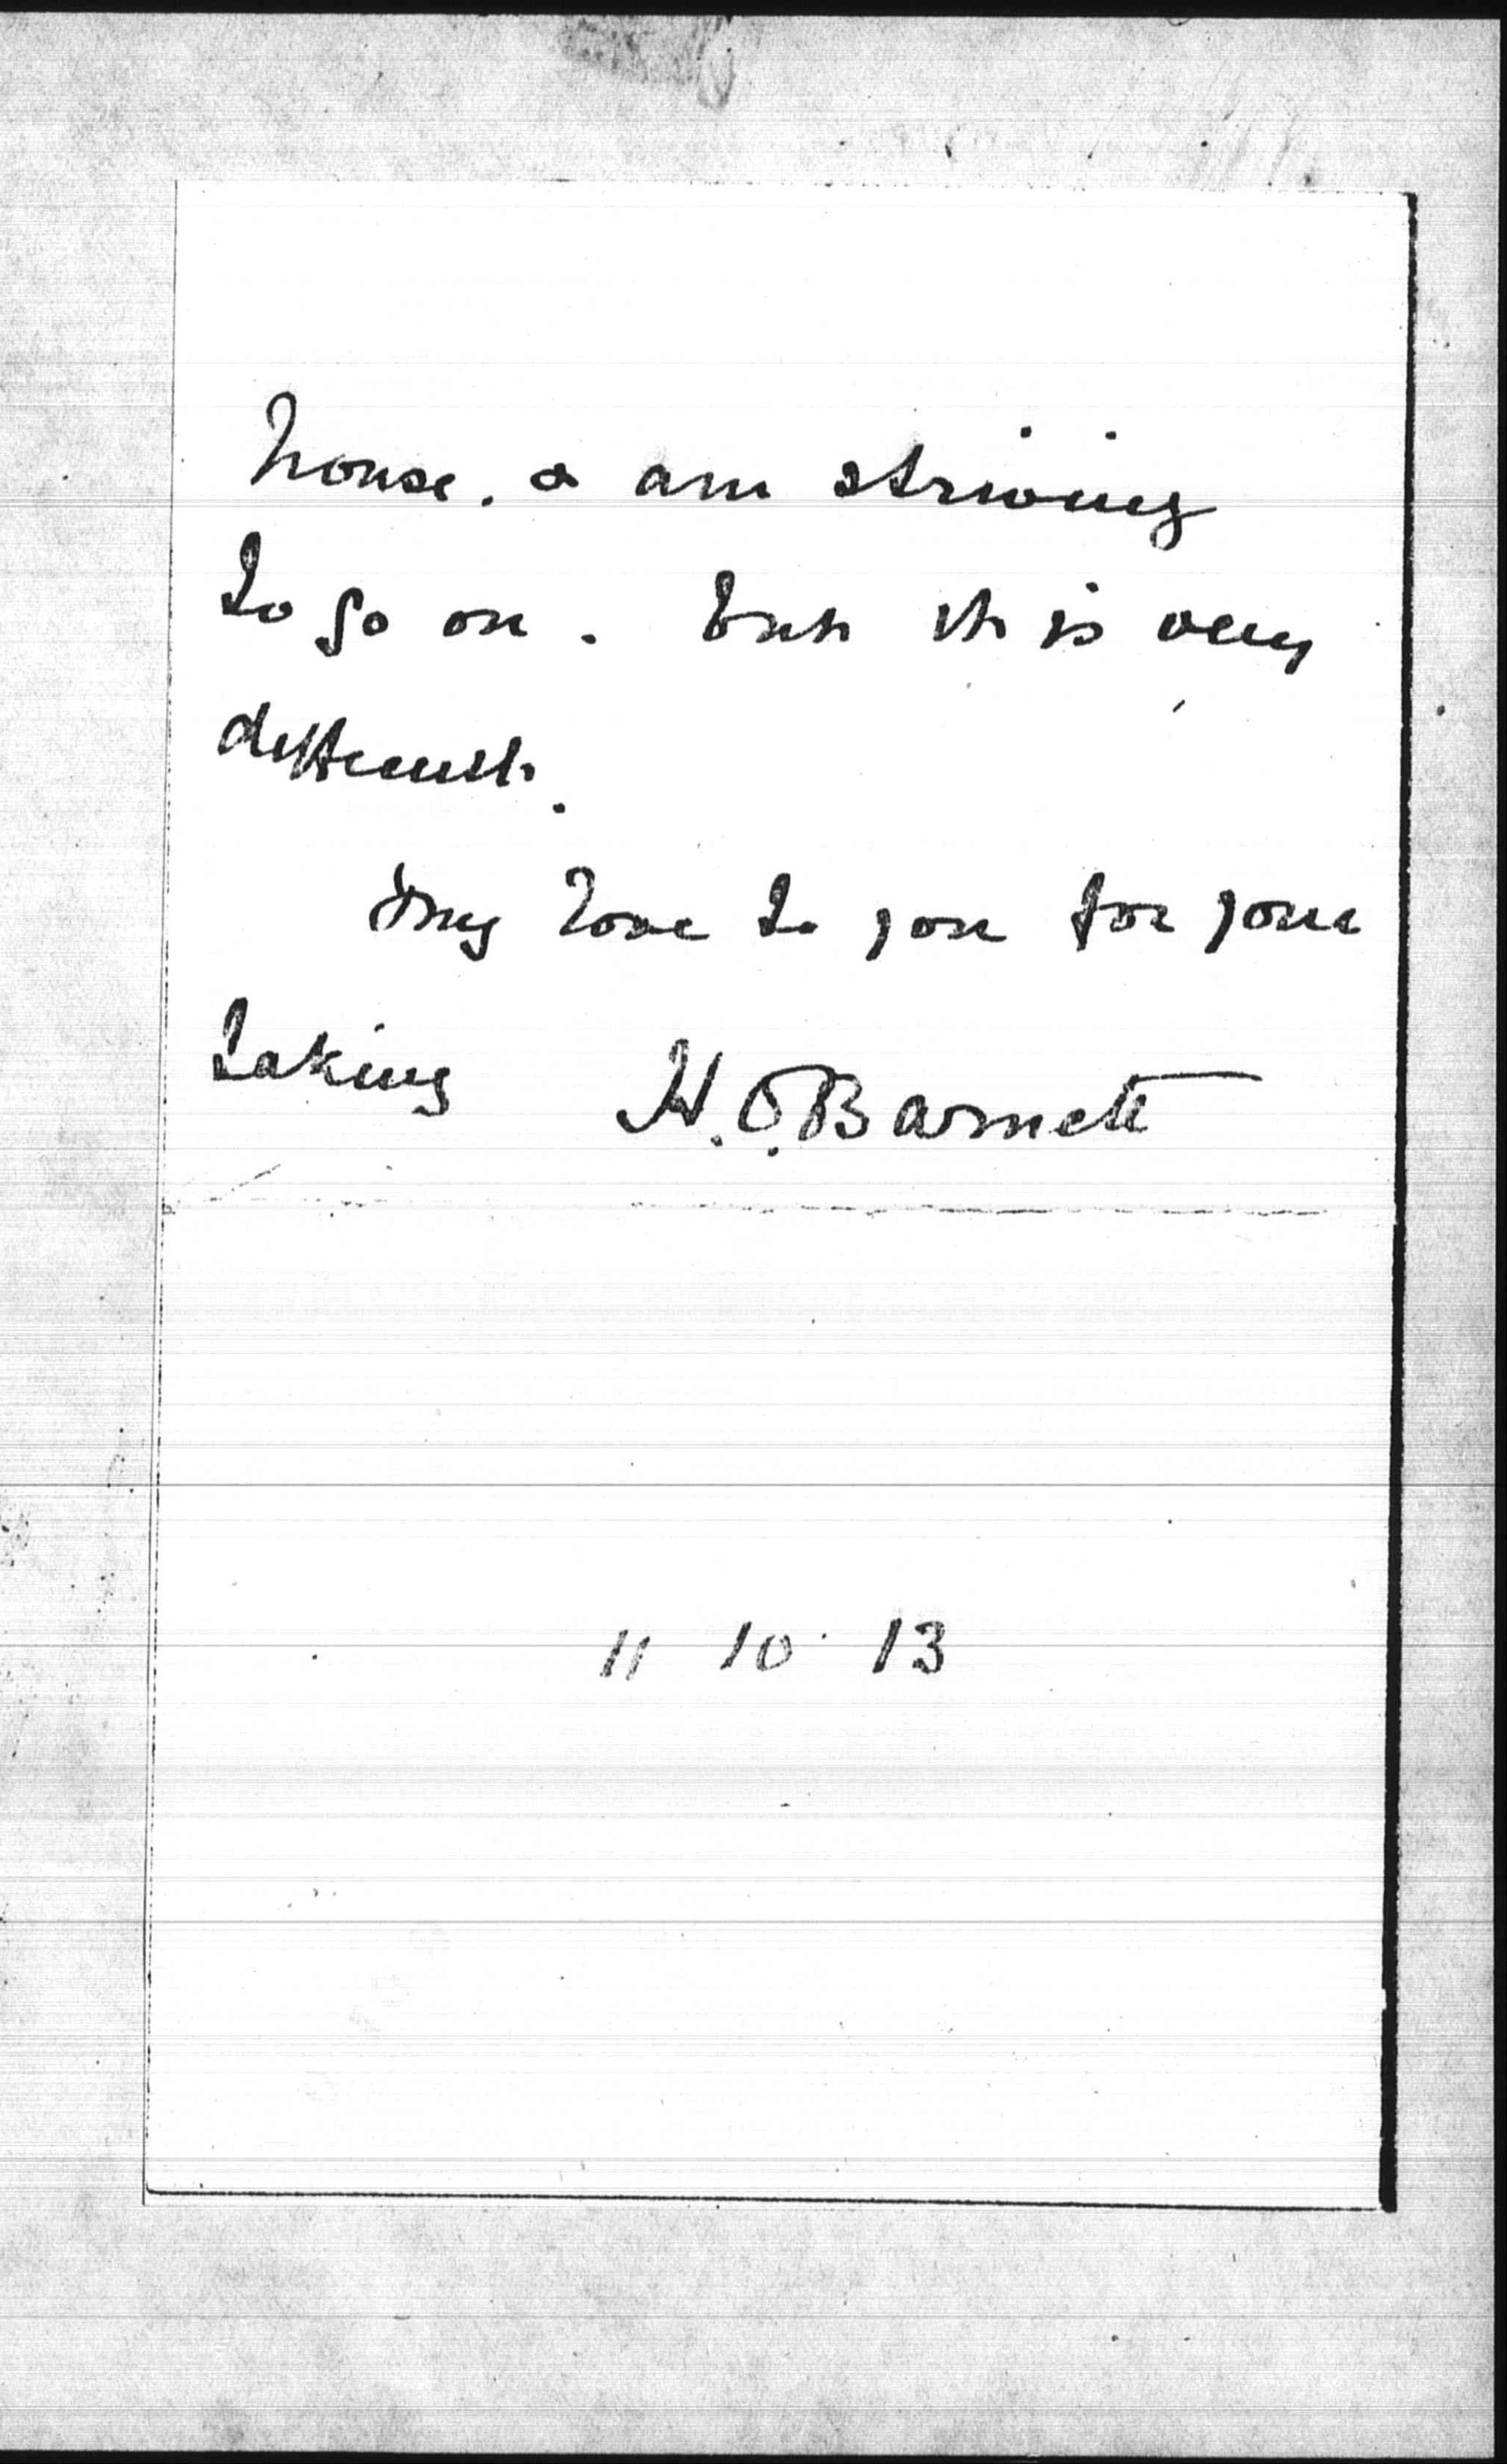 house. & am striving
to go on. but it is very
difficult.
My love to you for your
taking H.O.Barnett
11 10 13